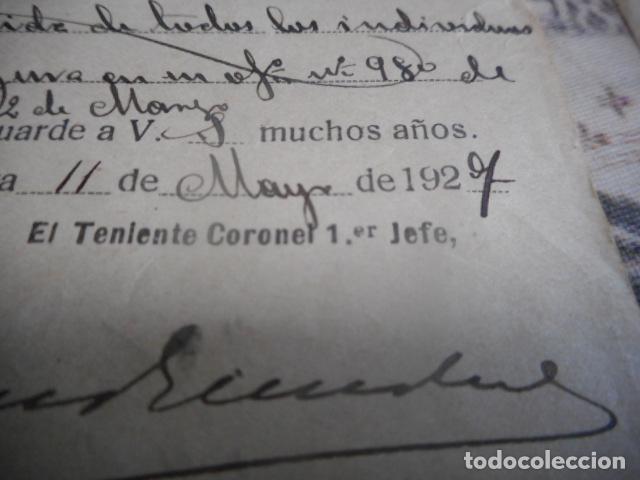 ida de todos los individuos
gura en su ofº nº 980 de
2 de Marzo
uarde a V. S muchos años.
a 11 de Mayo de 1929
El Teniente Coronel 1.er Jefe,
todocoleccion